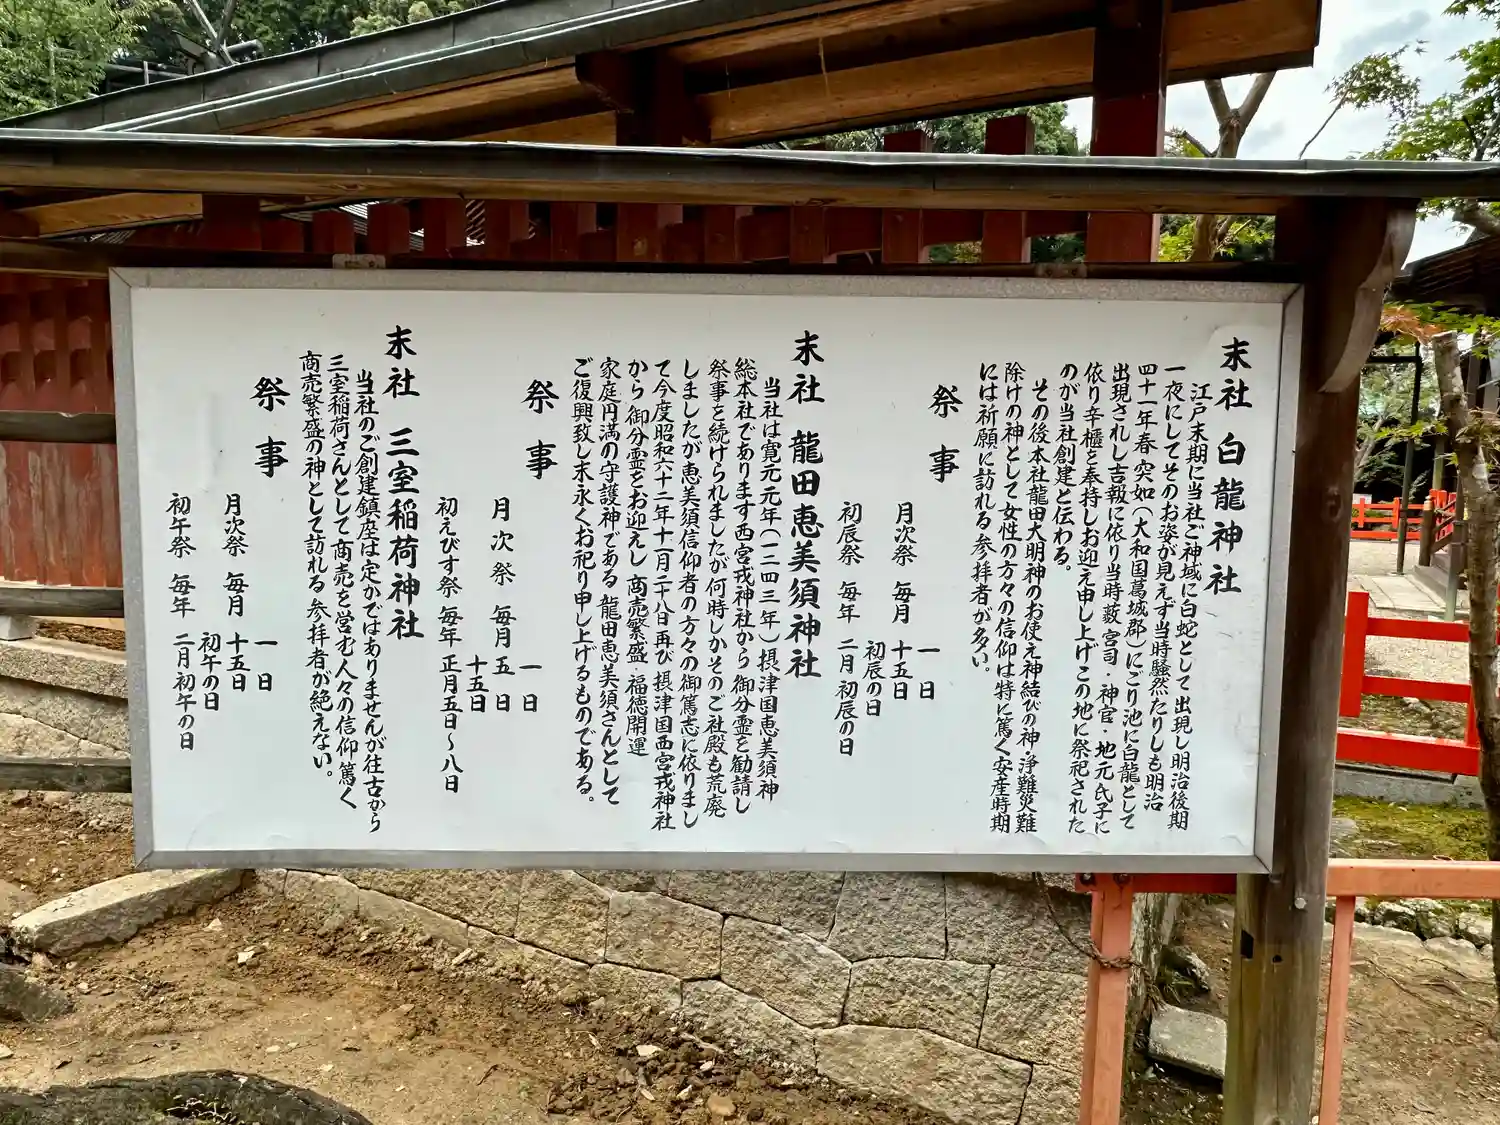 末社 白龍神社
江戸末期に当社ご神域に白蛇として出現し明治後期
一夜にしてそのお姿が見えず当時騒然たりしも明治
四十一年春 突如(大和国葛城郡)にごり池に白龍として
出現されし吉報に依り当時藪宮司・神官・地元氏子に
依り辛櫃を奉持しお迎え申し上げこの地に祭祀された
のが当社創建と伝わる。
その後本社龍田大明神のお使え神結びの神・浄難災難
除けの神として女性の方々の信仰は特に篤く安産時期
には祈願に訪れる参拝者が多い。
祭事
月次祭 毎月 一日
十五日
初辰の日
初辰祭 毎年 二月初辰の日
末社 龍田恵美須神社
当社は寛元元年(一二四三年)摂津国恵美須神
総本社であります西宮戎神社から御分霊を勧請し
祭事を続けられましたが何時しかそのご社殿も荒廃
しましたが恵美須信仰者の方々の御篤志に依りまし
て今度昭和六十二年十一月二十八日再び摂津国西宮戎神社
から御分霊をお迎えし 商売繁盛・福徳開運
家庭円満の守護神である 龍田恵美須さんとして
ご復興致し末永くお祀り申し上げるものである。
祭事
月次祭 毎月 一日
五日
十五日
初えびす祭 毎年 正月五日～八日
末社 三室稲荷神社
当社のご創建鎮座は定かではありませんが往古から
三室稲荷さんとして商売を営む人々の信仰篤く
商売繁盛の神として訪れる参拝者が絶えない。
祭事
月次祭 毎月 一日
十五日
初午の日
初午祭 毎年 二月初午の日